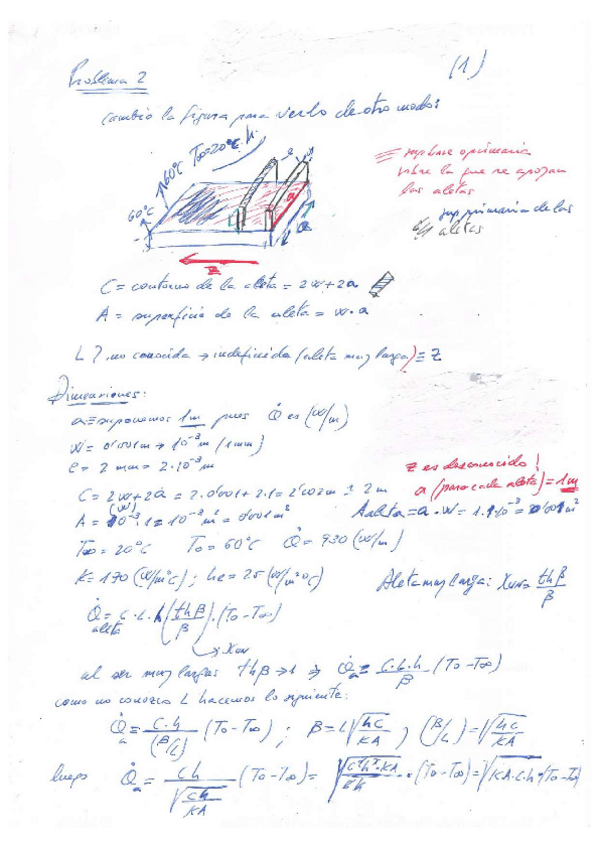 (1)
Problema 2
Cambio la figura para verlo de otro modo:
60°C T∞=20°C h
60°C
sup base o primaria
sobre la que se apoyan
las aletas
sup primaria de las
aletas
z
C = contorno de la aleta = 2w+2a
A = superficie de la aleta = w·a
L ?, no conocida → indefinida (aleta muy larga) ≡ Z
Dimensiones:
a ≡ suponemos 1m pues Q̇ es (W/m)
w = 0'001m → 10⁻³m (1mm)
e = 2mm = 2·10⁻³m
z es desconocido!
a (para cada aleta) = 1m
C = 2w+2a = 2·0'001+2·1 = 2'002m ≃ 2m
(w)
A = 10⁻³·1 = 10⁻³m² = 0'001m²
Aaleta = a·w = 1·1·10⁻³ = 0'001m²
T∞ = 20°C T₀ = 60°C Q̇ = 930 (W/m)
K = 170 (W/m°C) ; hc = 25 (W/m²°C)
Aleta muy larga: = thβ/β
Q̇aleta = C·L·h (thβ/β)·(T₀-T∞)
al ser muy largas thβ→1 ⇒ Q̇a = C·L·h/β (T₀-T∞)
como no conozco L hacemos lo siguiente:
Q̇a = C·h/(β/L) (T₀-T∞) ; β = L√(hC/KA) , (β/L) = √(hC/KA)
luego Q̇a = Ch/√(Ch/KA) (T₀-T∞) = √(C²h²·KA/Ch)·(T₀-T∞) = √(KA·C·h)·(T₀-T∞)